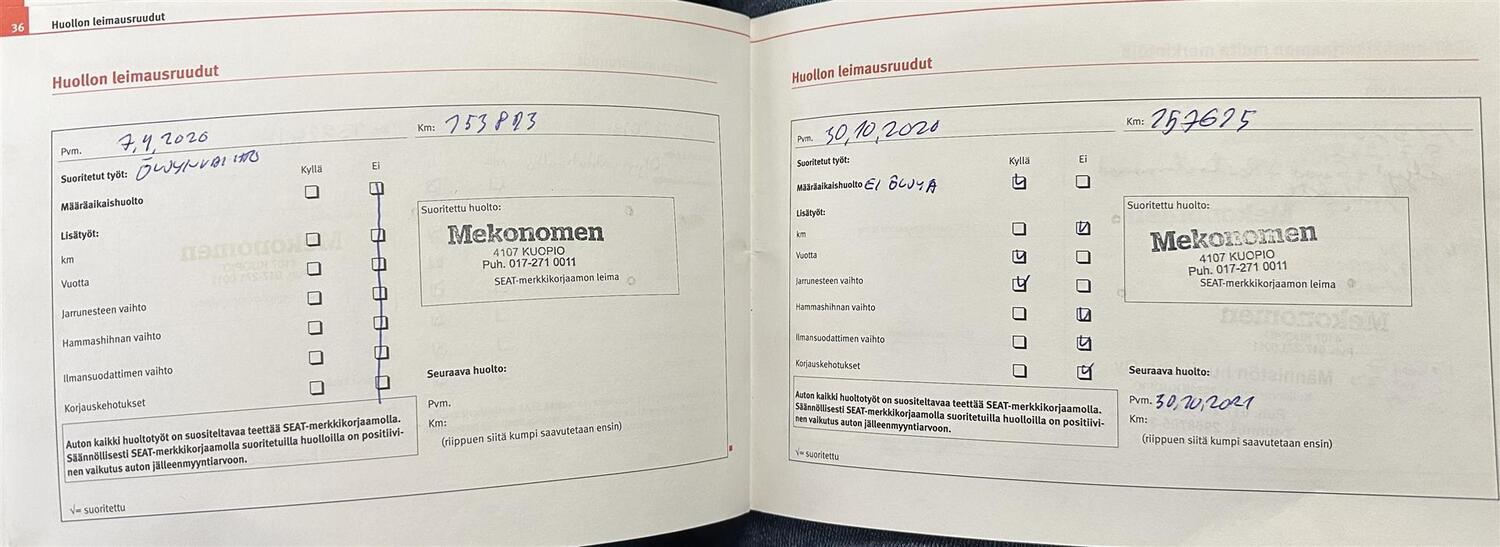 36
Huollon leimausruudut
Huollon leimausruudut
Pvm. 7,4,2020
Km: 153813
Suoritetut työt: ÖLJYNVAIHTO
Kyllä
Ei
Määräaikaishuolto
Lisätyöt:
km
Vuotta
Jarrunesteen vaihto
Hammashihnan vaihto
Ilmansuodattimen vaihto
Korjauskehotukset
Suoritettu huolto:
Mekonomen
4107 KUOPIO
Puh. 017-271 0011
SEAT-merkkikorjaamon leima
Seuraava huolto:
Pvm.
Km:
(riippuen siitä kumpi saavutetaan ensin)
Auton kaikki huoltotyöt on suositeltavaa teettää SEAT-merkkikorjaamolla.
Säännöllisesti SEAT-merkkikorjaamolla suoritetuilla huolloilla on positiivi-
nen vaikutus auton jälleenmyyntiarvoon.
√= suoritettu
Huollon leimausruudut
Pvm. 30,10,2020
Km: 157625
Suoritetut työt:
Kyllä
Ei
Määräaikaishuolto EI ÖLJYÄ
Lisätyöt:
km
Vuotta
Jarrunesteen vaihto
Hammashihnan vaihto
Ilmansuodattimen vaihto
Korjauskehotukset
Suoritettu huolto:
Mekonomen
4107 KUOPIO
Puh. 017-271 0011
SEAT-merkkikorjaamon leima
Seuraava huolto:
Pvm. 30,10,2021
Km:
(riippuen siitä kumpi saavutetaan ensin)
Auton kaikki huoltotyöt on suositeltavaa teettää SEAT-merkkikorjaamolla.
Säännöllisesti SEAT-merkkikorjaamolla suoritetuilla huolloilla on positiivi-
nen vaikutus auton jälleenmyyntiarvoon.
√= suoritettu